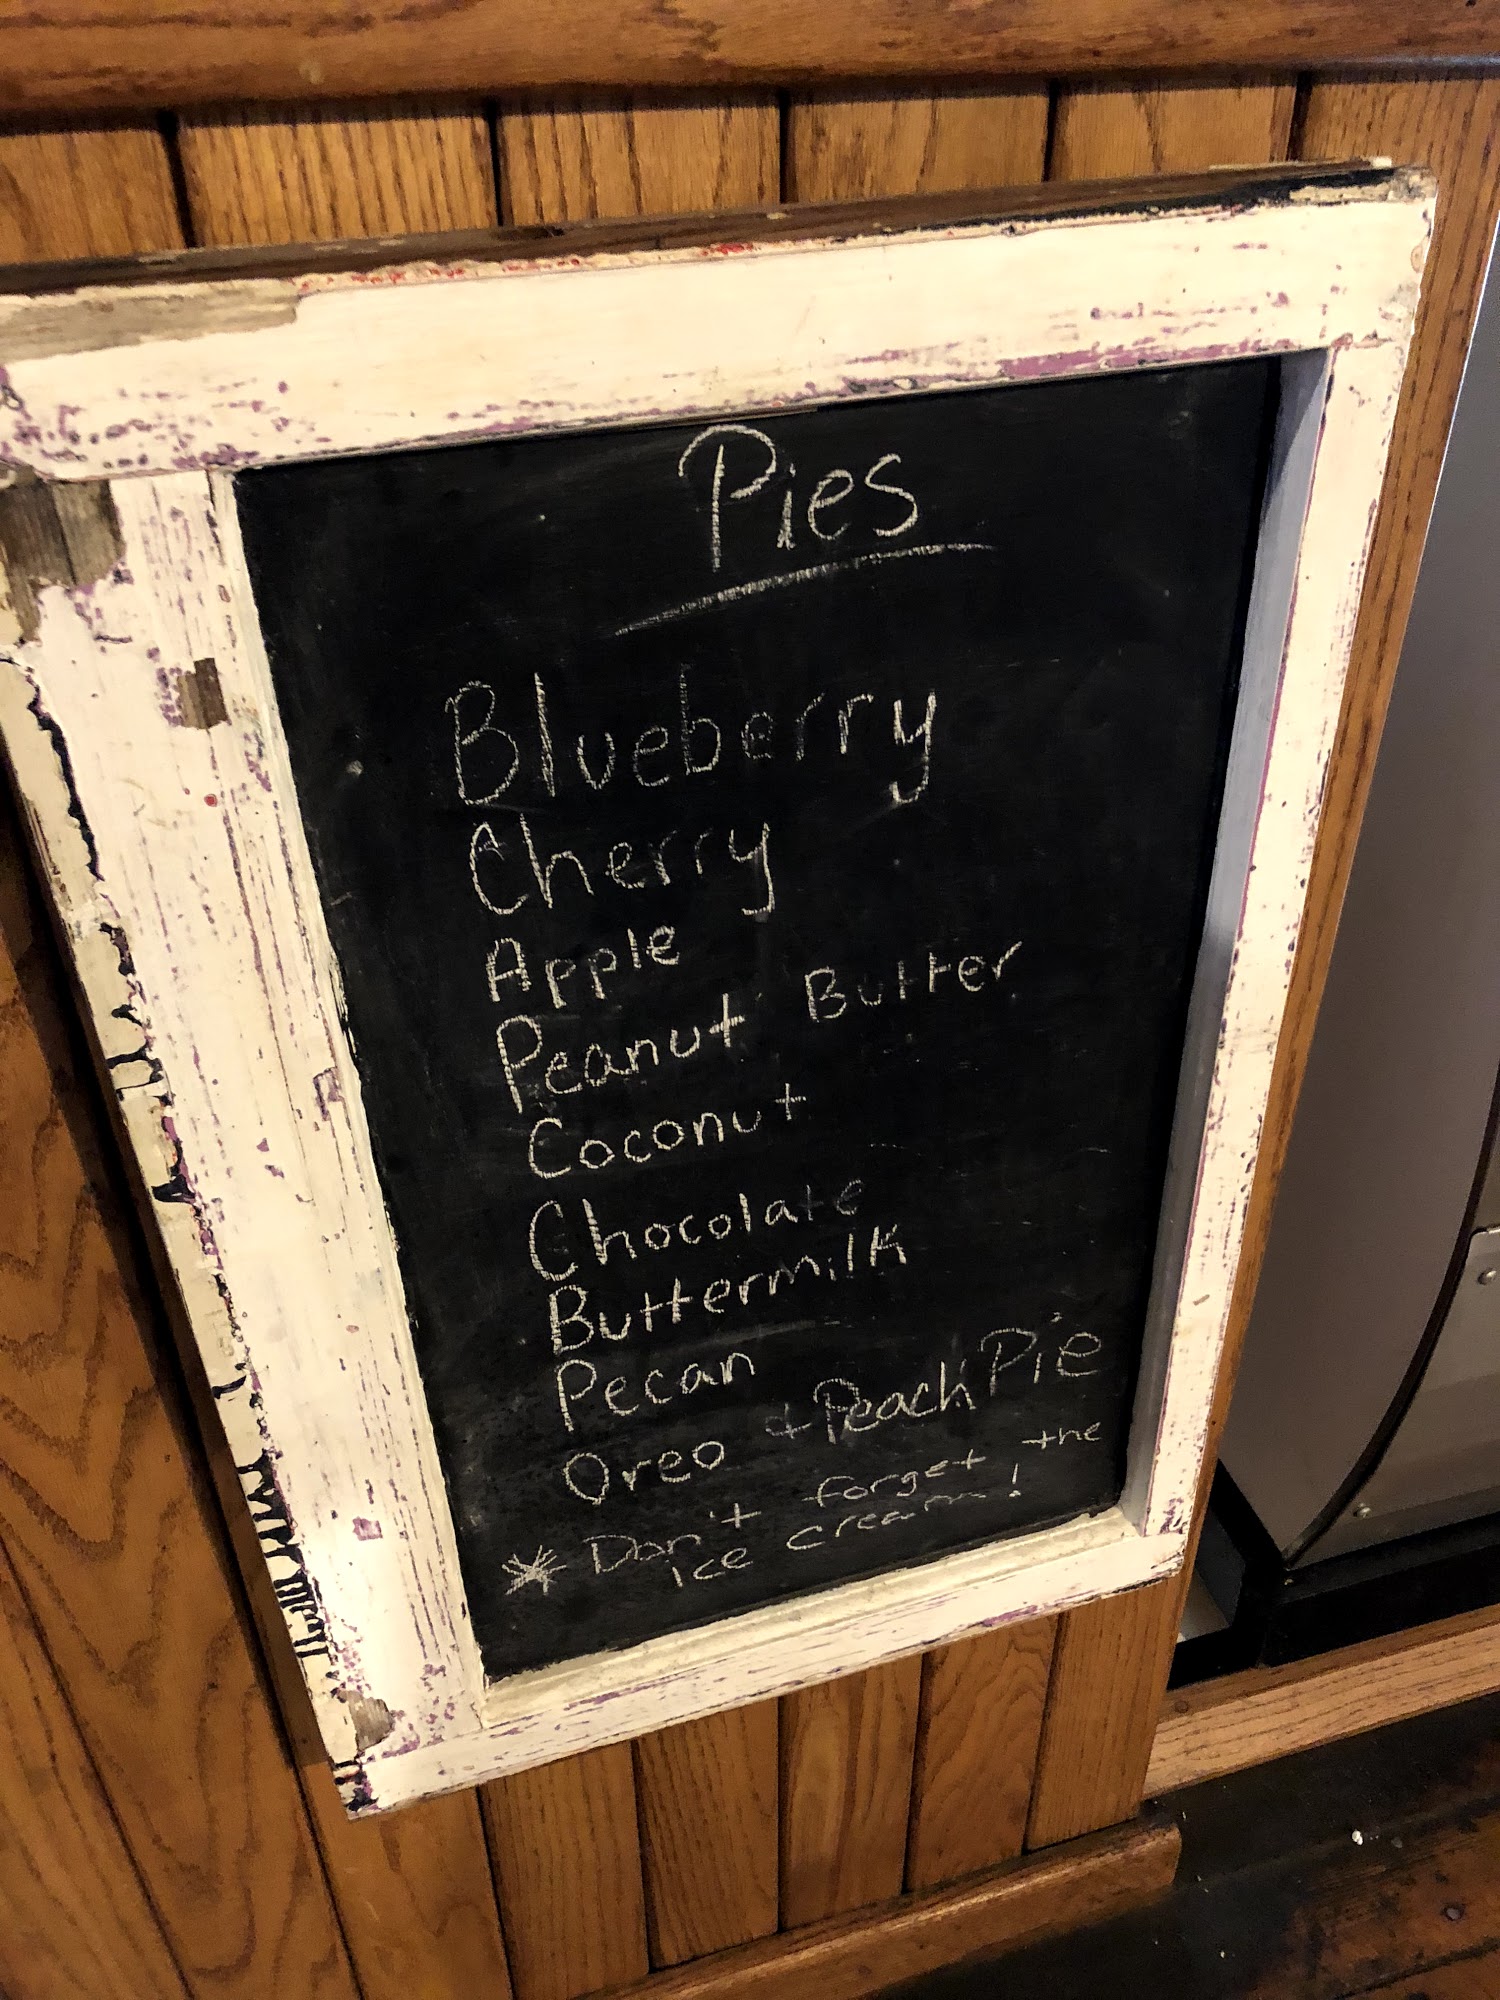 Pies
Blueberry
Cherry
Apple
Peanut Butter
Coconut
Chocolate
Buttermilk
Pecan
Oreo + Peach Pie
* Don't forget the
ice cream!